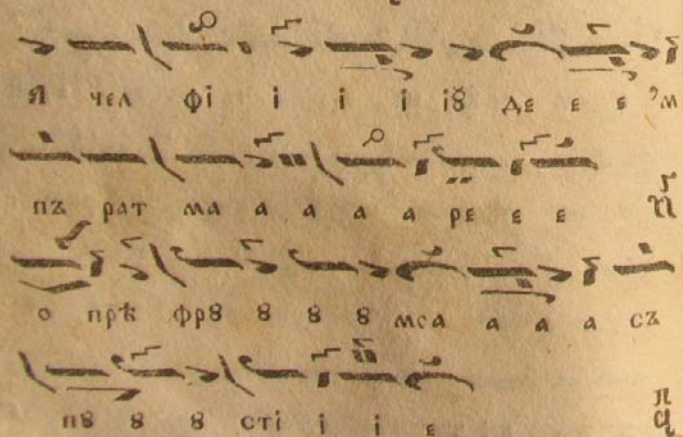 Я чел фі і і і іꙋ де е е ’м
пъ рат ма а а а а ре е е
о прѣ фрꙋ ꙋ ꙋ ꙋ мса а а а съ
пꙋ ꙋ ꙋ сті і і е